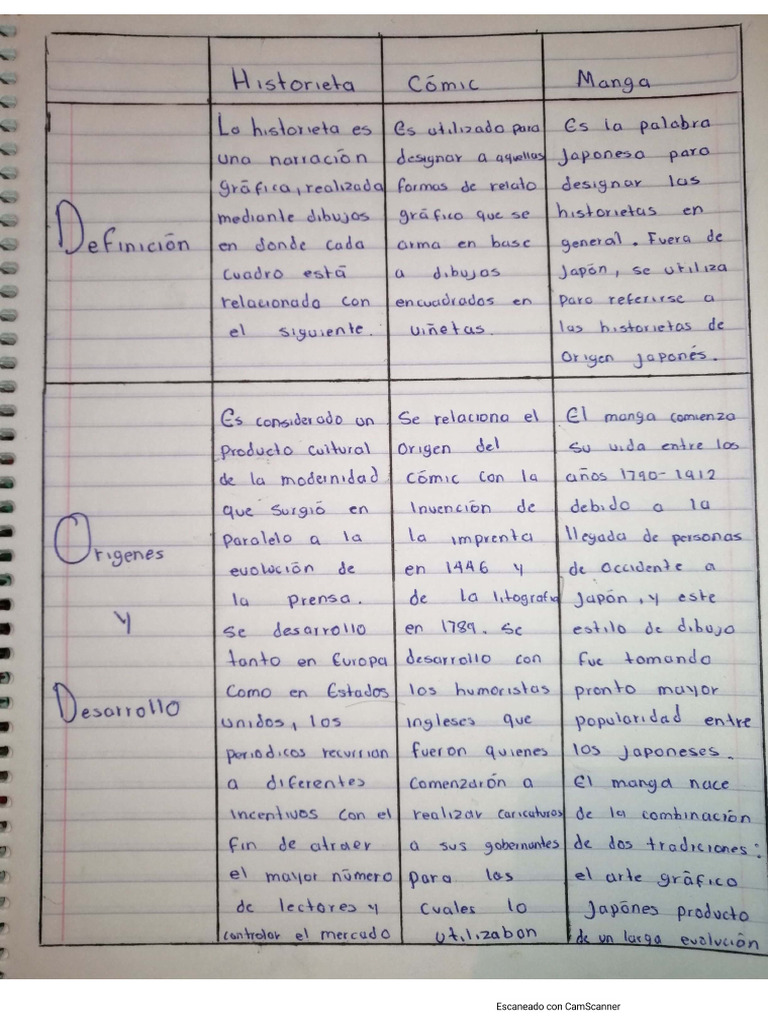 Historieta Cómic Manga
Definición
La historieta es
una narración
gráfica, realizada
mediante dibujos
en donde cada
cuadro está
relacionado con
el siguiente.
Es utilizado para
designar a aquellas
formas de relato
gráfico que se
arma en base
a dibujos
encuadrados en
viñetas.
Es la palabra
Japonesa para
designar las
historietas en
general. Fuera de
Japón, se utiliza
para referirse a
las historietas de
origen japonés.
Origenes
y
Desarrollo
Es considerado un
Producto cultural
de la modernidad
que surgió en
Paralelo a la
evolución de
la prensa.
Se desarrollo
tanto en Europa
Como en Estados
unidos, los
periodicos recurrian
a diferentes
incentivos con el
fin de atraer
el mayor número
de lectores y
controlar el mercado
Se relaciona el
origen del
Cómic con la
Invención de
la imprenta
en 1446 y
de la litografia
en 1789. Se
desarrollo con
los humoristas
ingleses que
fueron quienes
Comenzarón a
realizar caricaturas
a sus gobernantes
para las
cuales lo
utilizaban
El manga comienza
su vida entre los
años 1790-1912
debido a la
llegada de personas
de occidente a
Japón, y este
estilo de dibujo
fue tomando
pronto mayor
popularidad entre
los japoneses.
El manga nace
de la combinación
de dos tradiciones:
el arte gráfico
Japónes producto
de un larga evolución
Escaneado con CamScanner